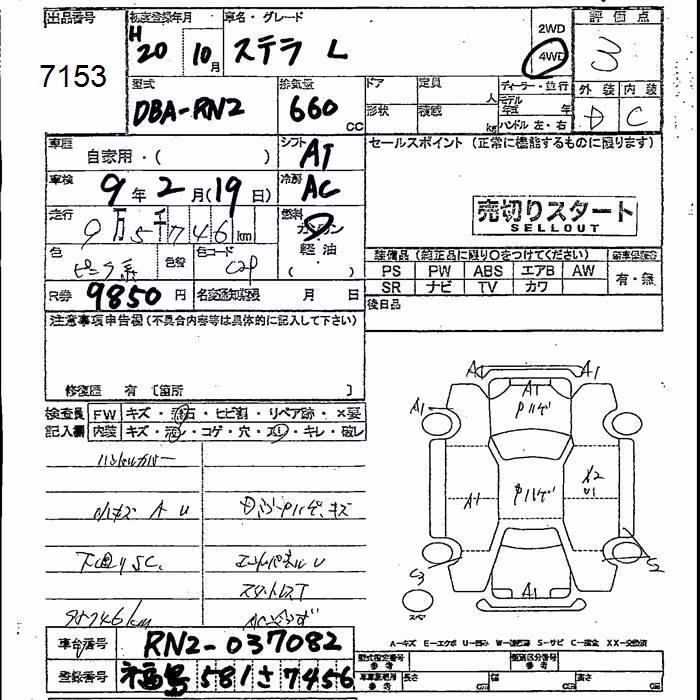 出品番号
7153
初度登録年月
H20年 10月
車名・グレード
ステラ L
2WD
4WD
評価点
3
外装 内装
D C
型式
DBA-RN2
排気量
660 cc
ドア
定員 人
形状
積載 kg
ディーラー・並行
モデル年式 年
ハンドル 左・右
車歴
自家用・( )
シフト
AT
車検
9年2月(19日)
冷房
AC
走行
9万5千746km
燃料
ガソリン
軽油
( )
色
ピンク系
色替
色コード
R券 9850円
名変通知期限 月 日
セールスポイント (正常に機能するものに限ります)
売切りスタート
SELLOUT
装備品 (純正品に限り○をつけてください)
PS PW ABS エアB AW
SR ナビ TV カワ
新車保証書
有・無
後日品
注意事項申告欄 (不具合内容等は具体的に記入して下さい)
修復歴 有 [箇所 ]
検査員 FW キズ・飛石・ヒビ割・リペア跡・×要
記入欄 内装 キズ・汚レ・コゲ・穴・スレ・キレ・破レ
ハンドルカバー
小キズ A U
下廻りSC.
95746km
A1 A1
A1
A1
A1
A1
S2
スペア
A-キズ E-エクボ U-凹み W-補修跡 S-サビ C-腐食 XX-交換済
車台番号 RN2-037082
登録番号 福島 581 さ 7456
型式指定番号 参考
類別区分番号 参考
車庫証明用 参考
長さ cm
幅 cm
高さ cm